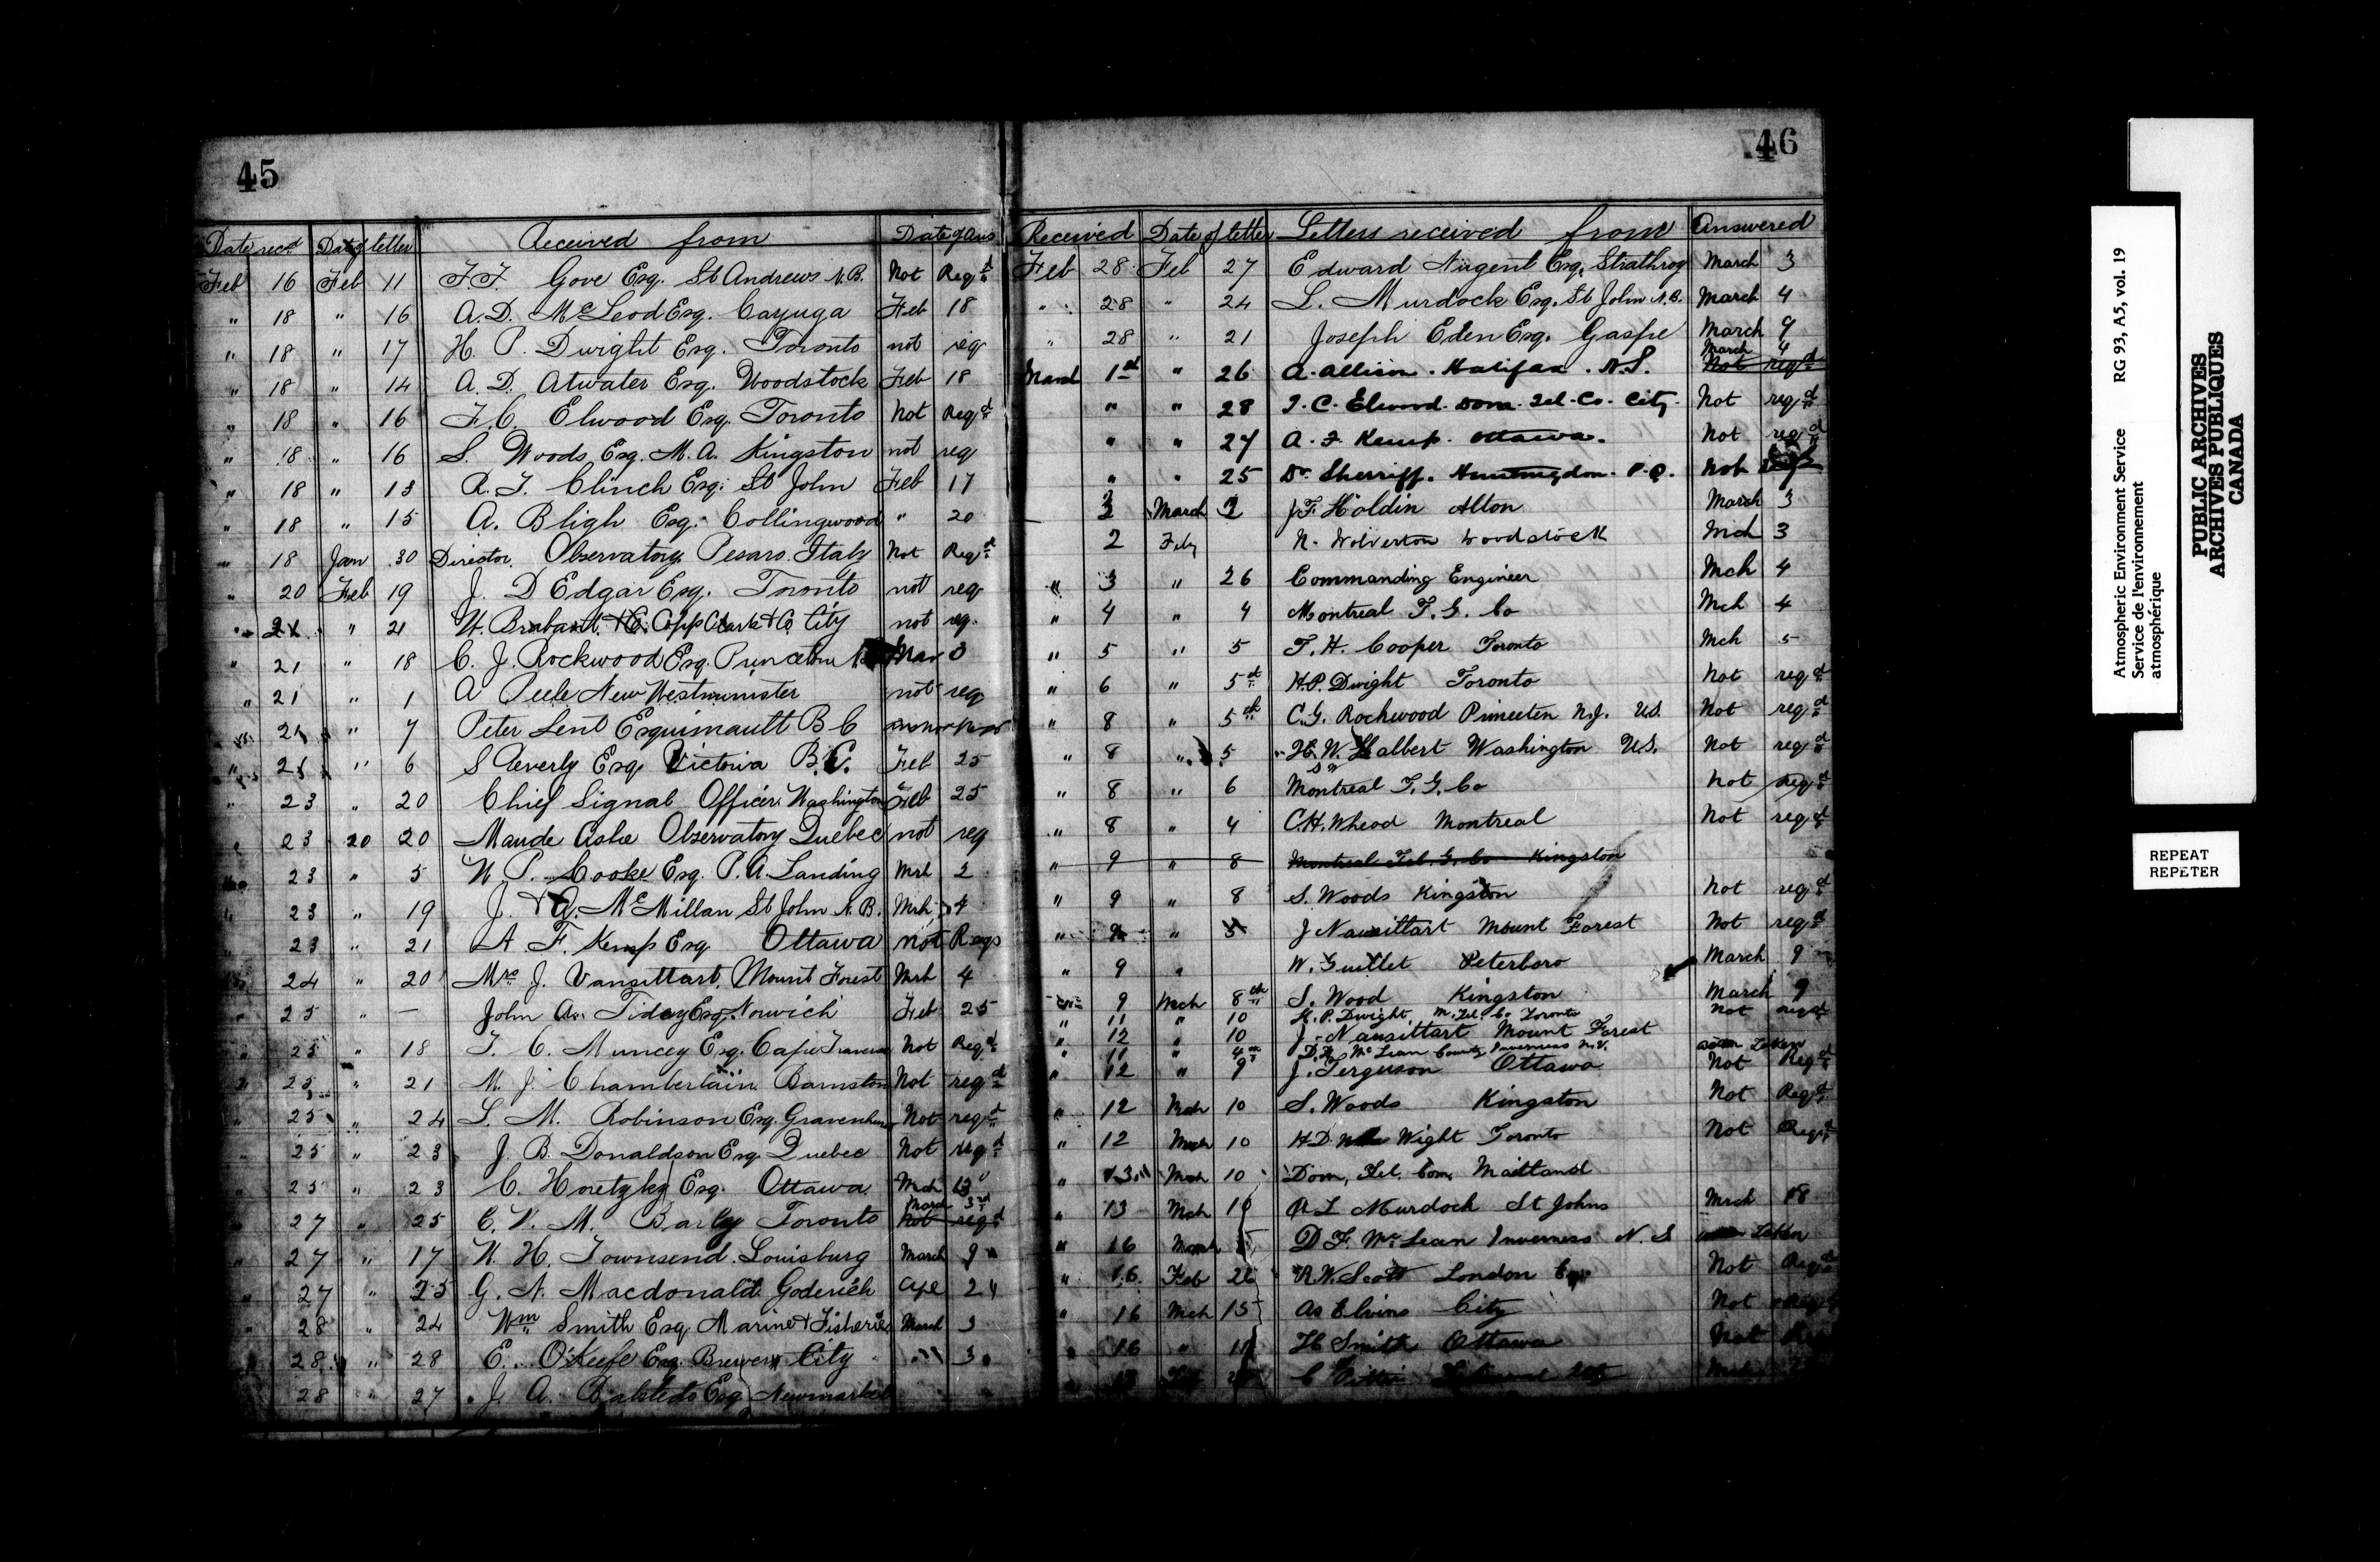 45
Date recd Date of letter Received from Date of ans
Feb 16 Feb 11 F.F. Gove Esq. St Andrews N.B. Not Reqd
" 18 " 16 A.D. McLeod Esq. Cayuga Feb 18
" 18 " 17 H. P. Dwight Esq. Toronto not req
" 18 " 14 A. D. Atwater Esq. Woodstock Feb 18
" 18 " 16 F.C. Elwood Esq. Toronto Not Reqd
" 18 " 16 S. Woods Esq. M.A. Kingston not req
" 18 " 13 R. T. Clinch Esq. St John Feb 17
" 18 " 15 A. Bligh Esq. Collingwood " 20
" 18 Jan 30 Director Observatory Pesaro Italy Not Reqd
" 20 Feb 19 J. D Edgar Esq. Toronto not req
" 21 " 21 City not req.
" 21 " 18 C. J. Rockwood Esq. Princeton Mar 3
" 21 " 1 A Peele New Westminister not req
" 21 " 7 Peter Lent Esquimault B C
" 21 " 6 S Esq Victoria B.C. Feb 25
" 23 " 20 Chief Signal Officer Washington Feb 25
" 23 20 20 Maude Ashe Observatory Quebec not req
23 " 5 N. P. Cooke Esq. P.A. Landing Mrh 2
" 23 " 19 J. & A. McMillan St John N.B. Mrh 4
" 23 " 21 A F. Kemp Esq Ottawa not Reqd
" 24 " 20 Mrs J. Vansittart, Mount Forest Mrh 4
" 25 " — John A. Tidey Esq. Norwich Feb 25
" 25 " 18 T. C. Muncey Esq. Cape Traverse Not Reqd
" 25 " 21 M. J. Chamberlain Barnston Not reqd
" 25 " 24 L. M. Robinson Esq. Gravenhurst Not reqd
" 25 " 23 J. B. Donaldson Esq. Quebec Not reqd
" 25 " 23 C. Horetzky Esq. Ottawa Mch 13
March 3rd
" 27 " 25 C. V. M. Toronto Not reqd
" 27 " 17 N. H. Townsend Louisburg March 9
" 27 " 25 G. N. Macdonald Goderich Apl 24
" 28 " 24 Wm Smith Esq Marine & Fisheries March 3
" 28 " 28 E. O'Keefe Esq. Brewery City " 3
28 " 27 J. A. Esq Newmarket
46
Received Date of letter Letters received from Answered
Feb 28 Feb 27 Edward Nugent Esq. Strathroy March 3
" 28 " 24 L. Murdock Esq. St John N.B. March 4
" 28 " 21 Joseph Eden Esq. Gaspe March 9
March 4
March 1st " 26 A. Allison. Halifax. N.S. Not reqd
" " 28 T. C. Elwood. Dom. Tel. Co. City Not reqd
" " 27 A. F. Kemp. Ottawa. Not reqd
" " 25 Dr. Sherriff. Huntingdon. P.Q. Not
2 March 2 J.F. Holdin Alton March 3
2 Feby N. Wolverton Woodstock Mch 3
" 3 " 26 Commanding Engineer Mch 4
" 4 " 4 Montreal T. G. Co Mch 4
" 5 " 5 T. H. Cooper Toronto Mch 5
" 6 " 5th H.P. Dwight Toronto Not reqd
" 8 " 5th C.G. Rockwood Princeton N.J. U.S. Not reqd
" 8 " 5 H. W. albert Washington U.S. Not reqd
" 8 " 6 Montreal T. G. Co Not reqd
" 8 " 4 C.H. Montreal Not reqd
" 9 " 8 Montreal Tel. G. Co Kingston
" 9 " 8 S. Woods Kingston Not reqd
" 9 " 5 J Nansittart Mount Forest Not reqd
" 9 " W. Guillet Peterboro March 9
9 Mch 8th S. Wood Kingston March 9
" 11 " 10 H. P. Dwight M. Tel. Co. Toronto Not reqd
" 12 " 10 J. Nansittart Mount Forest
" 11 " 4th D. F. McLean County Inverness action taken
" 12 " 9 J. Ferguson Ottawa Not Reqd
" 12 Mch 10 S. Woods Kingston Not Reqd
" 12 Mch 10 H D Wight Toronto Not Reqd
" 13 Mch 10 Dom. Tel. Com. Maitland
" 13 Mch 10 L Murdoch St Johns Mrch 18
" 16 March D F. McLean Inverness N. S taken
" 16 Feb 26 R.W. Scott London Not Reqd
" 16 Mch 15 As Elvins City Not
16 " H Smith Ottawa Not
Atmospheric Environment Service RG 93, A5, vol. 19
Service de l'environnement
atmosphérique
PUBLIC ARCHIVES
ARCHIVES PUBLIQUES
CANADA
REPEAT
REPETER